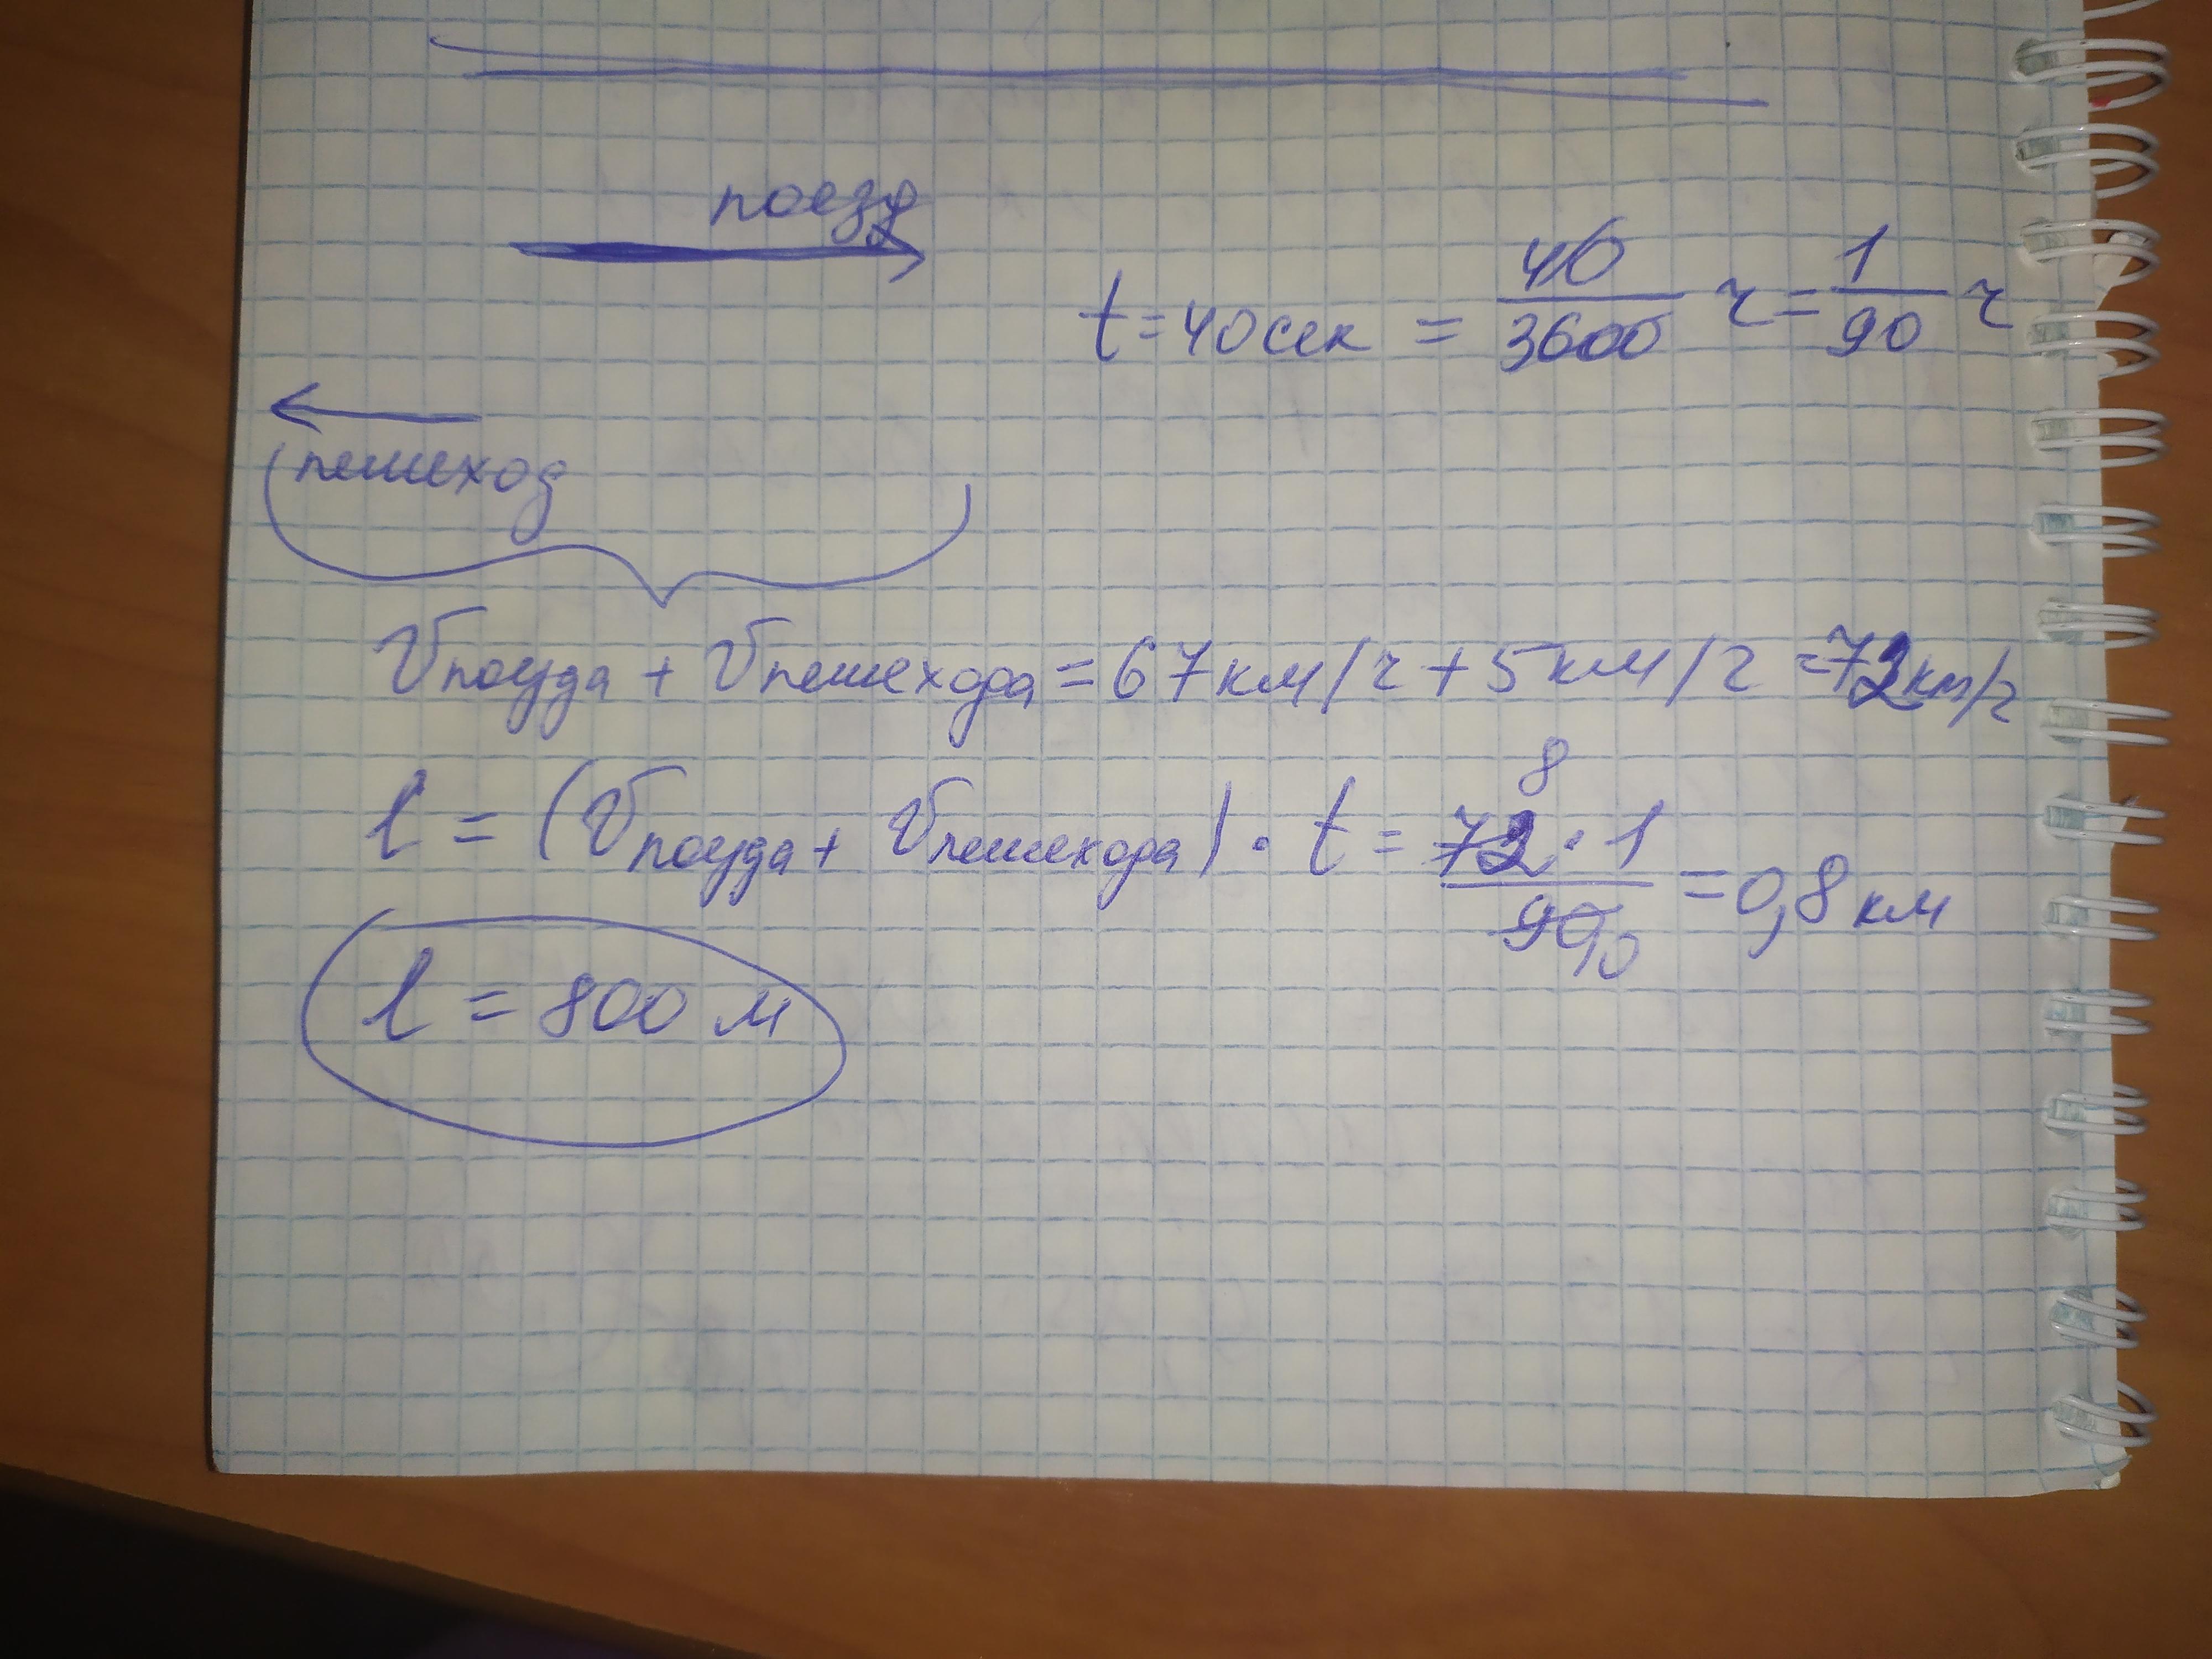 поезд
t = 40 сек = 40/3600 ч = 1/90 ч
пешеход
Vпоезда + Vпешехода = 67 км/ч + 5 км/ч = 72 км/ч
8
l = (Vпоезда + Vпешехода) · t = 72 · 1/90 = 0,8 км
10
l = 800 м